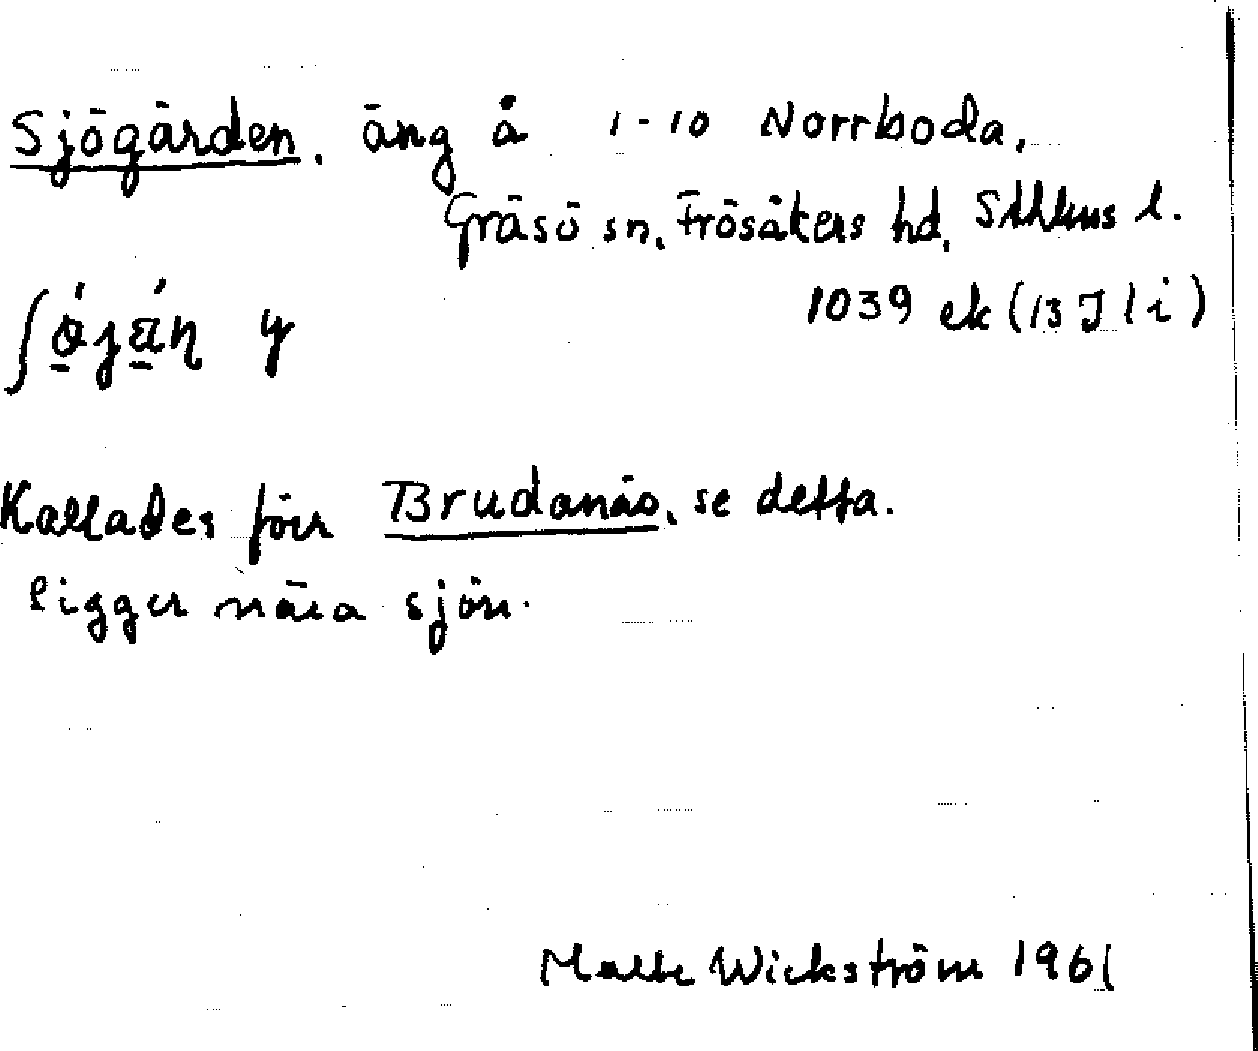 Sjögärden, äng å 1-10 Norrboda,
Gräsö sn, Frösåkers hd, Sthlms l.
1039 ek (13 J 1 i)
Kallades förr Brudanäs, se detta.
Ligger nära sjön.
Malte Wickström 1961